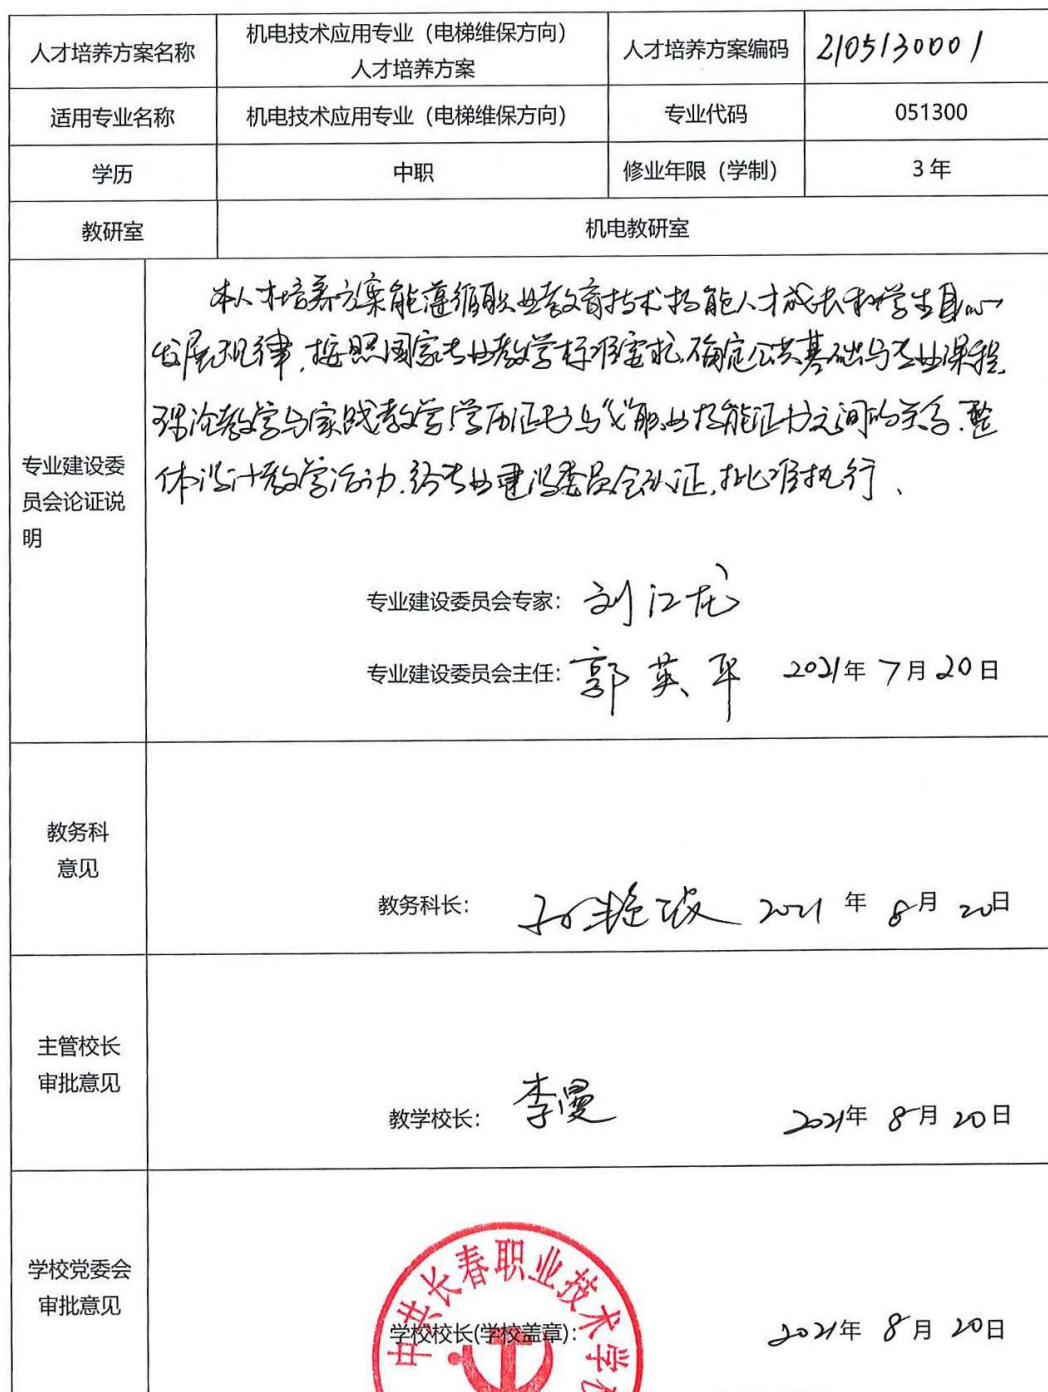 人才培养方案名称 机电技术应用专业（电梯维保方向） 人才培养方案编码 2105130001
人才培养方案
适用专业名称 机电技术应用专业（电梯维保方向） 专业代码 051300
学历 中职 修业年限（学制） 3 年
教研室 机电教研室
专业建设委
员会论证说
明
本人才培养方案能遵循职业教育技术技能人才成长和学生身心
发展规律，按照国家专业教学标准要求，确定公共基础与专业课程
理论教学与实践教学，学历证书与“X”职业技能证书之间的关系，整
体设计教学活动，经专业建设委员会认证，批准执行、
专业建设委员会专家： 刘江龙
专业建设委员会主任： 郭英平 2021年 7月20日
教务科
意见
教务科长： 2021 年 8月 20日
主管校长
审批意见
教学校长： 李曼 2021年 8月 20日
学校党委会
审批意见
中共长春职业技术学校
学校校长(学校盖章)： 2021年 8月 20日